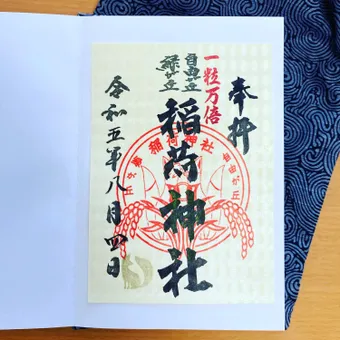 奉拝
一粒万倍
自由が丘
緑が丘
稲荷神社
令和五年八月四日
稲荷神社
自由が丘